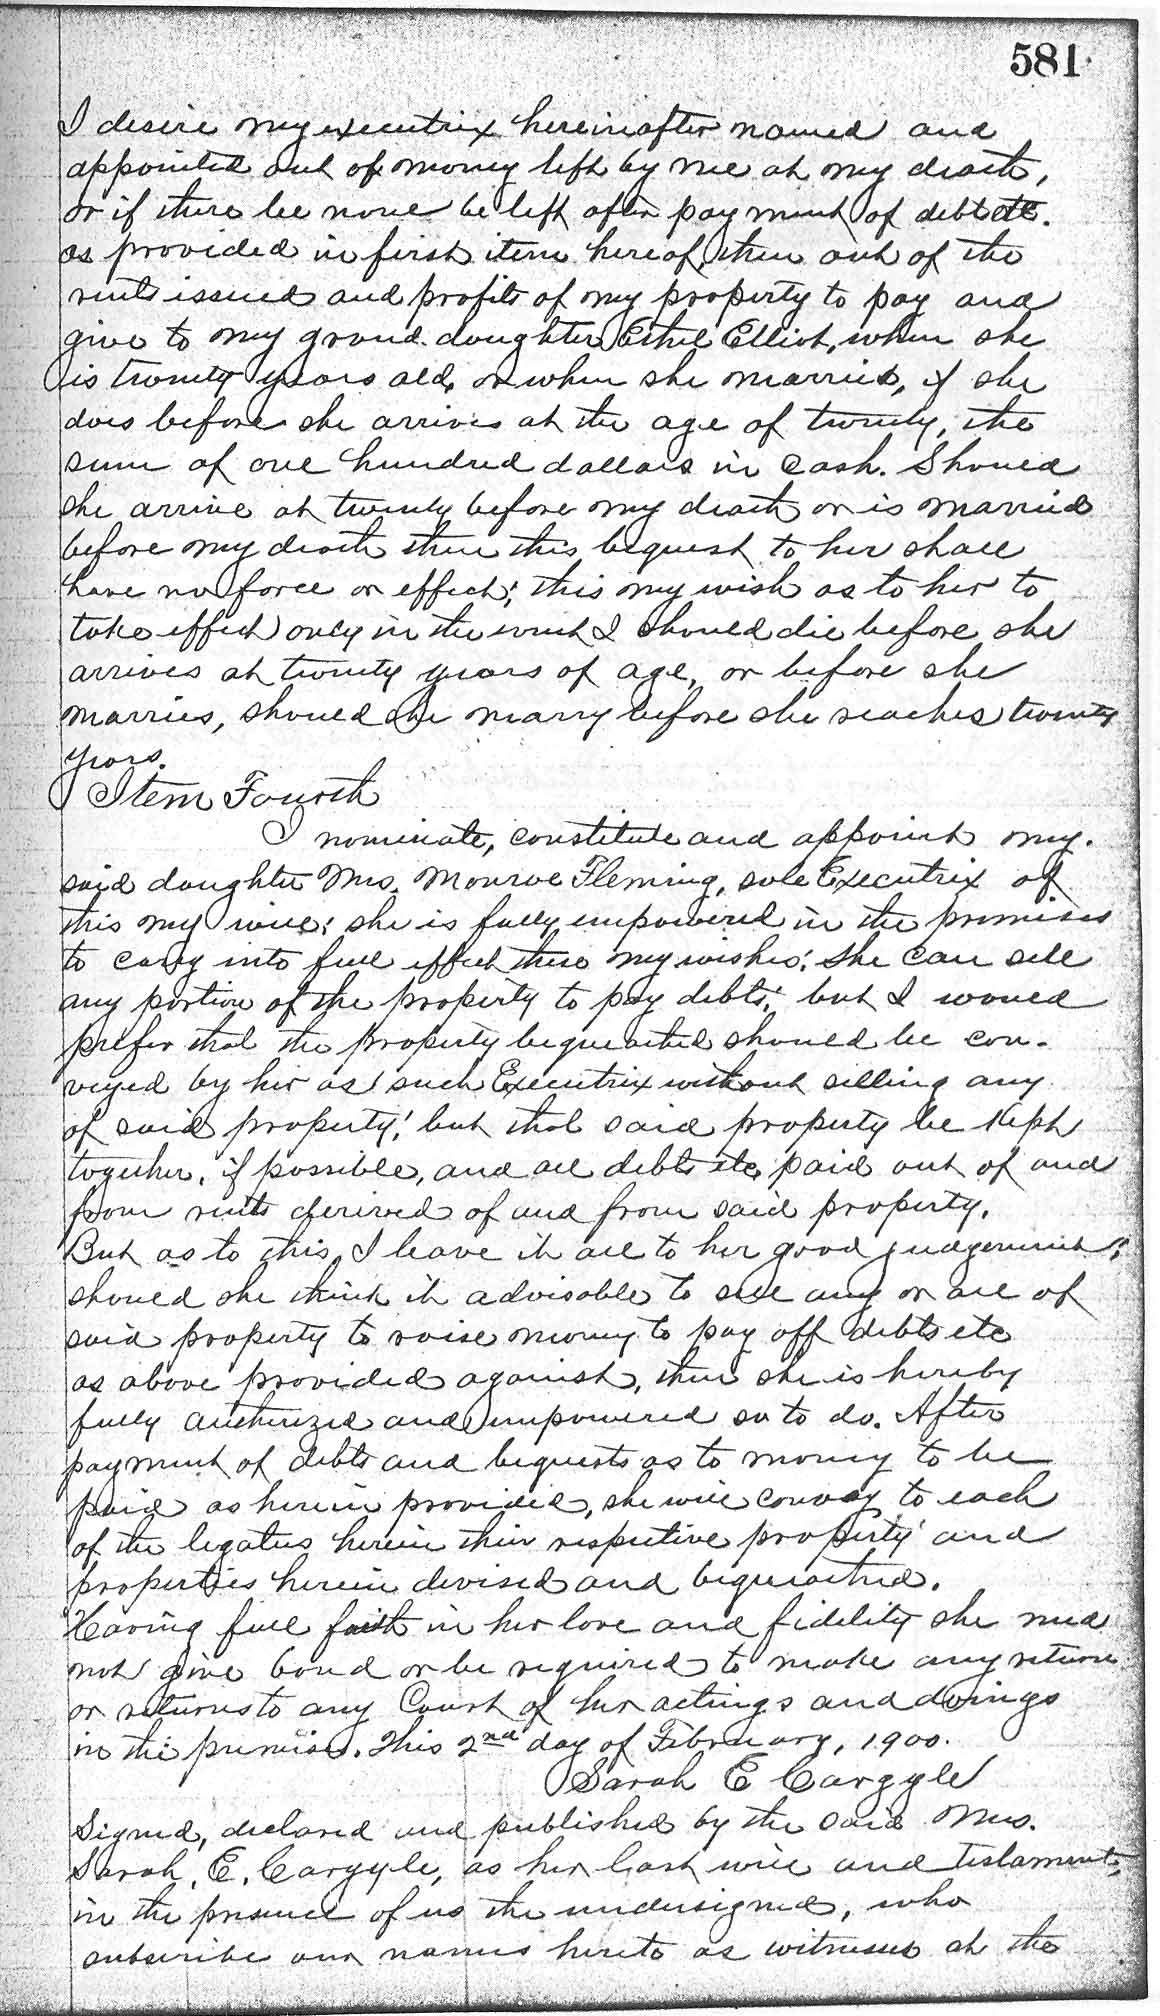 581
I desire my executrix hereinafter named and
appointed out of money left by me at my death,
or if there be none be left after payment of debts etc.
as provided in first item hereof, then out of the
rents issued and profits of my property to pay and
give to my grand-daughter Ethel Elliot, when she
is twenty years old, or when she marries, if she
does before she arrives at the age of twenty, the
sum of one hundred dollars in cash. Should
she arrive at twenty before my death or is married
before my death then this bequest to her shall
have no force or effect; this my wish as to her to
take effect only in the event I should die before she
arrives at twenty years of age, or before she
marries, should she marry before she reaches twenty
years.
Item Fourth
I nominate, constitute and appoint my
said daughter Mrs. Monroe Fleming, sole Executrix of
this my will: she is fully empowered in the premises
to carry into full effect these my wishes: She can sell
any portion of the property to pay debts; but I would
prefer that the property bequeathed should be con-
veyed by her as such Executrix without selling any
of said property; but that said property be kept
together, if possible, and all debts etc paid out of and
from rents derived of and from said property.
But as to this, I leave it all to her good judgement;
should she think it advisable to sell any or all of
said property to raise money to pay off debts etc
as above provided against, then she is hereby
fully autherized and empowered so to do. After
payment of debts and bequests as to money to be
paid as herein provided, she will convey to each
of the legatees herein their respective property and
properties herein devised and bequeathed.
Having full faith in her love and fidelity she need
not give bond or be required to make any return
or returns to any Court of her actings and doings
in the premises. This 2nd day of February, 1900.
Sarah E Cargyle
Signed, declared and published by the said Mrs.
Sarah, E. Cargyle, as her last will and testament,
in the presence of us the undersigned, who
subscribe our names hereto as witnesses at the